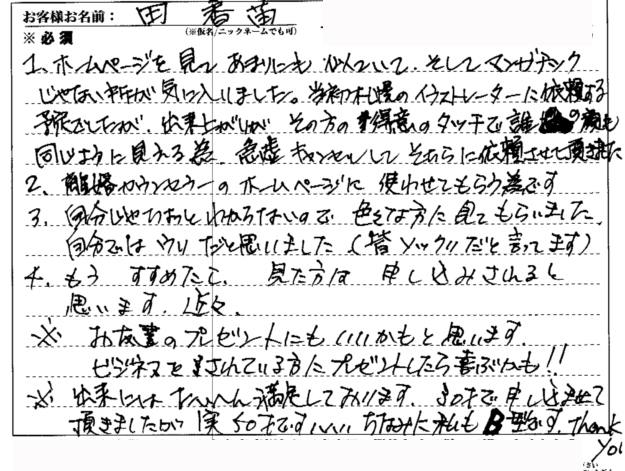 お客様お名前: 田 香苗
(※仮名/ニックネームでも可)
※必須
1、ホームページを見て あまりにも 似ていて、そして マンガチック
じゃない所が気に入りました。当初札幌のイラストレーターに依頼する
予定でしたが、出来上がりが その方の得意のタッチで誰の顔も
同じように見える為、急虚キャンセルして そちらに依頼させて頂きました
2、離婚カウンセラーのホームページに 使わせてもらう為です
3、自分じゃちょっとわからないので 色々な方に見てもらいました
自分では ウリ だと思いました(皆ソックリだと言ってます)
4、もう すすめたくて、見た方は 申し込みされると
思います。近々、
※ お友達のプレゼントにもいいかもと思います。
ビジネスをされている方にプレゼントしたら喜ぶかも!!
※ 出来にはたいへん満足しております。30才で申し込ませて
頂きましたが 実50才です ちなみに私もB型です。Thank
You